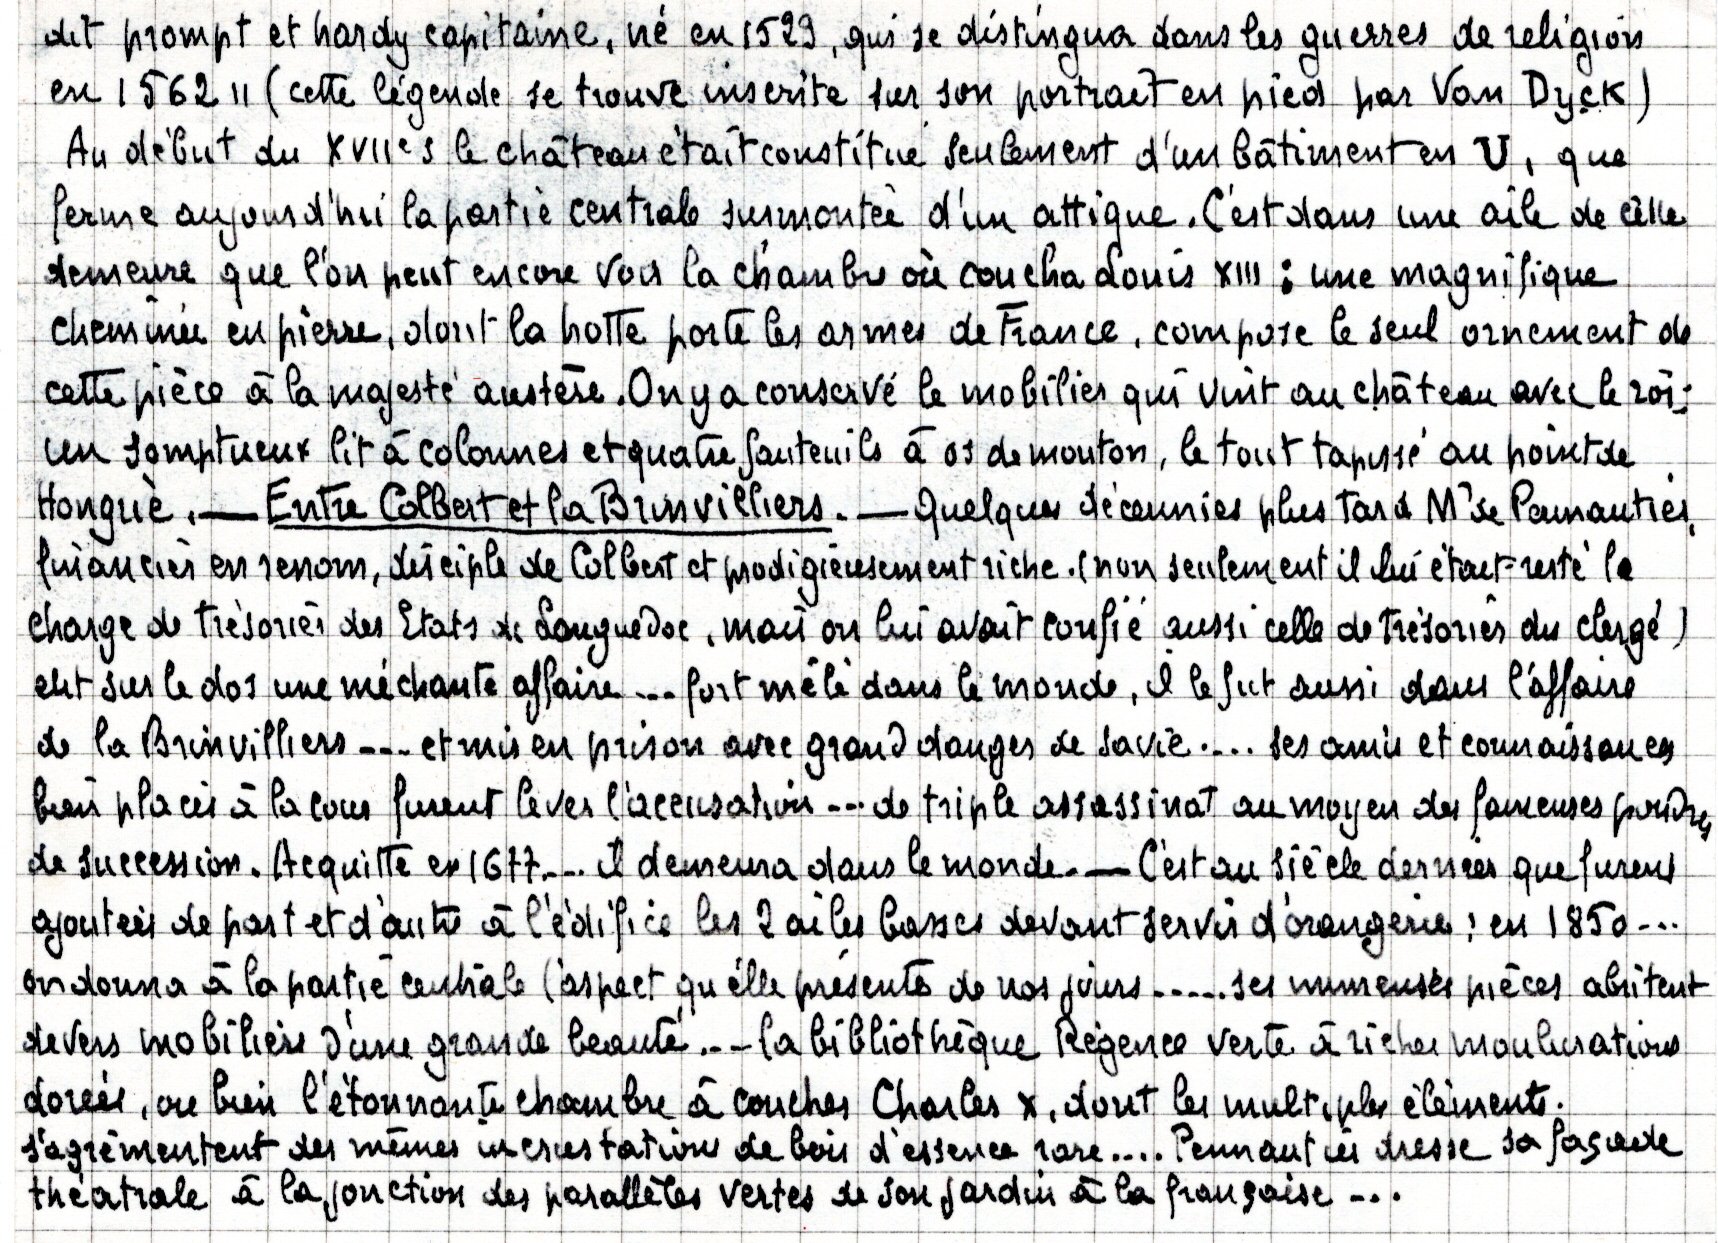 dit prompt et hardy capitaine, né en 1529, qui se distingua dans les guerres de religion
en 1562 " (cette légende se trouve inscrite sur son portrait en pied par Van Dyck)
Au début du XVIIe s le château était constitué seulement d'un bâtiment en U, que
ferme aujourd'hui la partie centrale surmontée d'un attique. C'est dans une aile de cette
demeure que l'on peut encore voir la chambre où coucha Louis XIII : une magnifique
cheminée en pierre, dont la hotte porte les armes de France, compose le seul ornement de
cette pièce à la majesté austère. On y a conservé le mobilier qui vint au château avec le roi :
un somptueux lit à colonnes et quatre fauteuils à os de mouton, le tout tapissé au point de
Hongrie. — Entre Colbert et la Brinvilliers. — Quelques décennies plus tard Mr de Pennautier,
financier en renom, disciple de Colbert et prodigieusement riche. (non seulement il lui était resté la
charge de trésorier des Etats de Languedoc, mais on lui avait confié aussi celle de trésorier du clergé)
eut sur le dos une méchante affaire ... fort mêlé dans le monde, il le fut aussi dans l'affaire
de la Brinvilliers .... et mis en prison avec grand danger de sa vie .... ses amis et connaissances
bien placés à la cour furent lever l'accusation ... de triple assassinat au moyen des fameuses poudres
de succession. Acquitté en 1677 ... il demeura dans le monde. — C'est au siècle dernier que furent
ajoutées de part et d'autre à l'édifice les 2 ailes basses devant servir d'orangerie ; en 1850 ...
on donna à la partie centrale l'aspect qu'elle présente de nos jours ..... ses immenses pièces abritent
divers mobiliers d'une grande beauté ... la bibliothèque Régence verte à riches moulurations
dorées, ou bien l'étonnante chambre à coucher Charles X, dont les multiples éléments
s'agrémentent des mêmes incrustations de bois d'essence rare .... Pennautier dresse sa façade
théatrale à la jonction des parallèles vertes de son jardin à la française ...